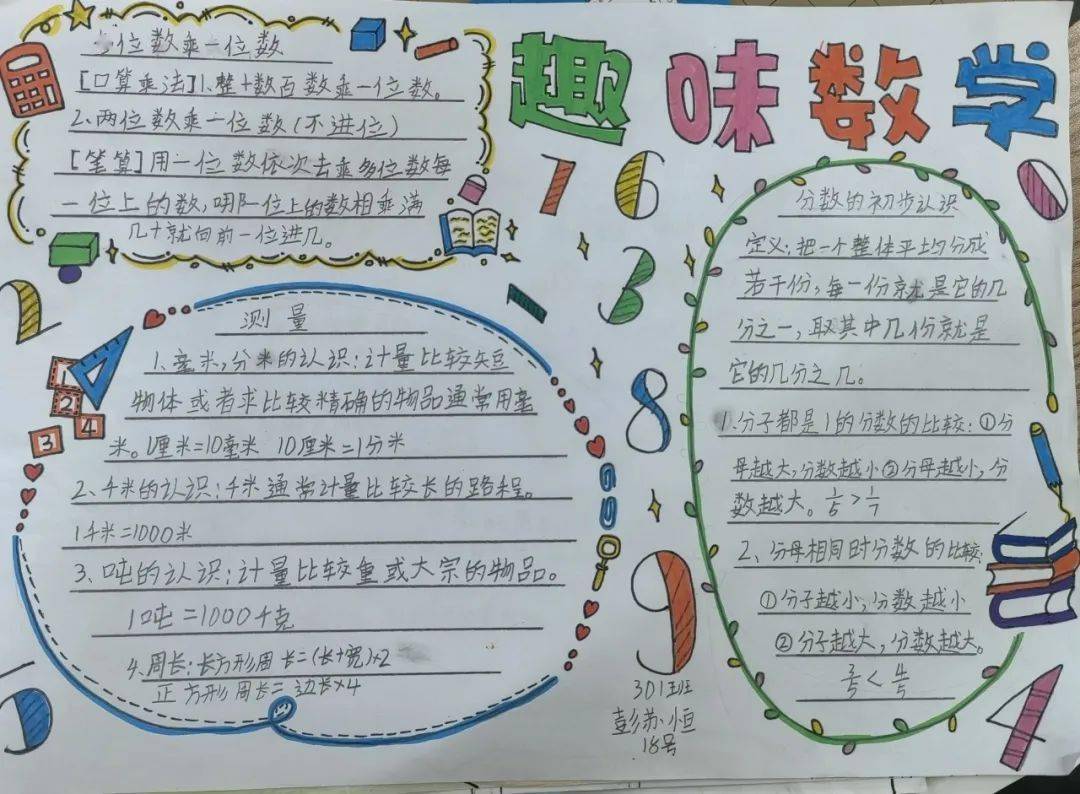 趣味数学
多位数乘一位数
[口算乘法]1、整十数百数乘一位数。
2、两位数乘一位数(不进位)
[笔算]用一位数依次去乘多位数每
一位上的数,哪一位上的数相乘满
几十就向前一位进几。
测量
1、毫米,分米的认识:计量比较短
物体或者求比较精确的物品通常用毫
米。1厘米=10毫米 10厘米=1分米
2、千米的认识:千米通常计量比较长的路程。
1千米=1000米
3、吨的认识:计量比较重或大宗的物品。
1吨=1000千克
4、周长:长方形周长=(长+宽)×2
正方形周长=边长×4
分数的初步认识
定义:把一个整体平均分成
若干份,每一份就是它的几
分之一,取其中几份就是
它的几分之几。
1、分子都是1的分数的比较:①分
母越大,分数越小②分母越小,分
数越大。1/5>1/7
2、分母相同时分数的比较:
①分子越小,分数越小
②分子越大,分数越大。
3/5<4/5
7 6
3
1
8
9
0
2
5
4
1
2
4
3
301班
彭苏恒
18号